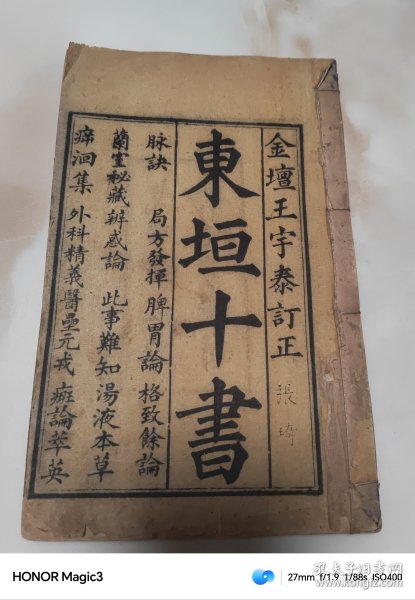 金壇王宇泰訂正
張琦
東垣十書
脉訣 局方發揮 脾胃論 格致餘論
蘭室秘藏 辨惑論 此事難知 湯液本草
溯洄集 外科精義 醫壘元戎 癍論萃英
HONOR Magic3
27mm f/1.9 1/88s ISO400
孔夫子旧书网